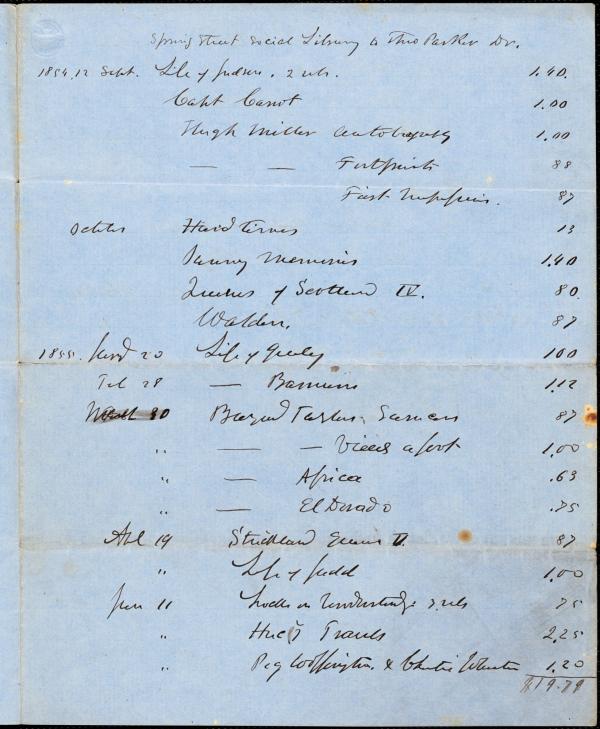 Spring Street Social Library to Theo Parker Dr.
1854, 12 Sept. Life of Judson, 2 vols. 1.40.
Capt Canot 1.00
Hugh Miller Autobiography 1.00
— — Footprints 88
First Impressions. 87
October Hard Times 13
Sunny Memories 1.40
Queens of Scotland IV. 80
Walden. 87
1855. 20 Life of Greeley 100
Feb 28 — Barnum 1.12
30 Bayard Taylor, Saracens 87
" — — Views afoot 1.00
" — Africa .63
" — El Dorado .75
Apl 19 Strickland Queens V. 87
" Life of Judd 1.00
June 11 Locke on Understandg 2 vols 75
" Huc's Travels 2.25
" Peg Woffington & Christie Johnstone 1.20
$19.79